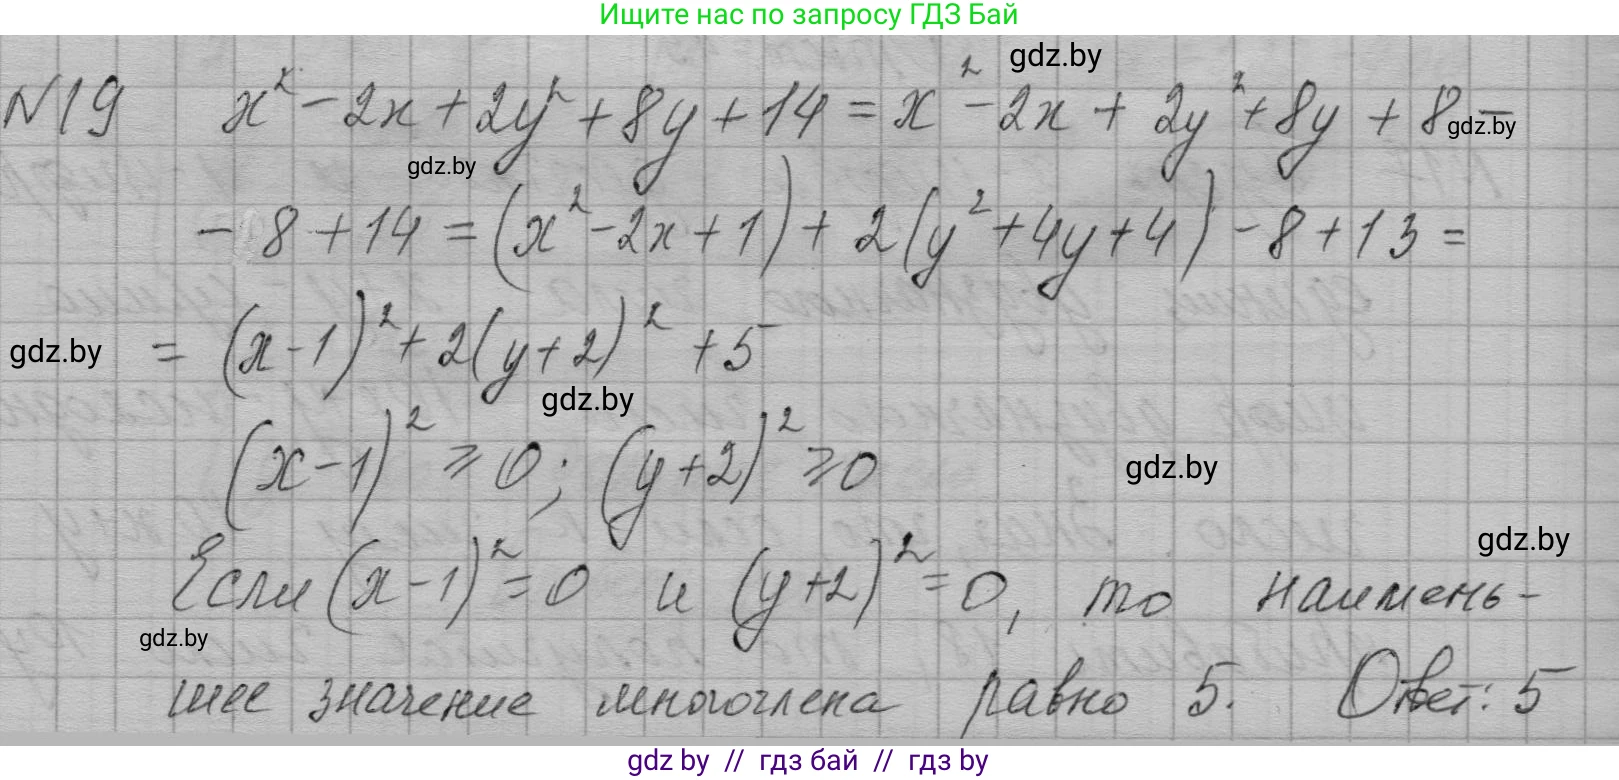 Ищите нас по запросу ГДЗ Бай
gdz.by
N19 x² - 2x + 2y² + 8y + 14 = x² - 2x + 2y² + 8y + 8 -
gdz.by
gdz.by
- 8 + 14 = (x² - 2x + 1) + 2(y² + 4y + 4) - 8 + 13 =
gdz.by
= (x - 1)² + 2(y + 2)² + 5
gdz.by
(x - 1)² ≥ 0; (y + 2)² ≥ 0
gdz.by
gdz.by
Если (x - 1)² = 0 и (y + 2)² = 0, то наимень-
gdz.by
шее значение многочлена равно 5. Ответ: 5
gdz.by // гдз бай // гдз by